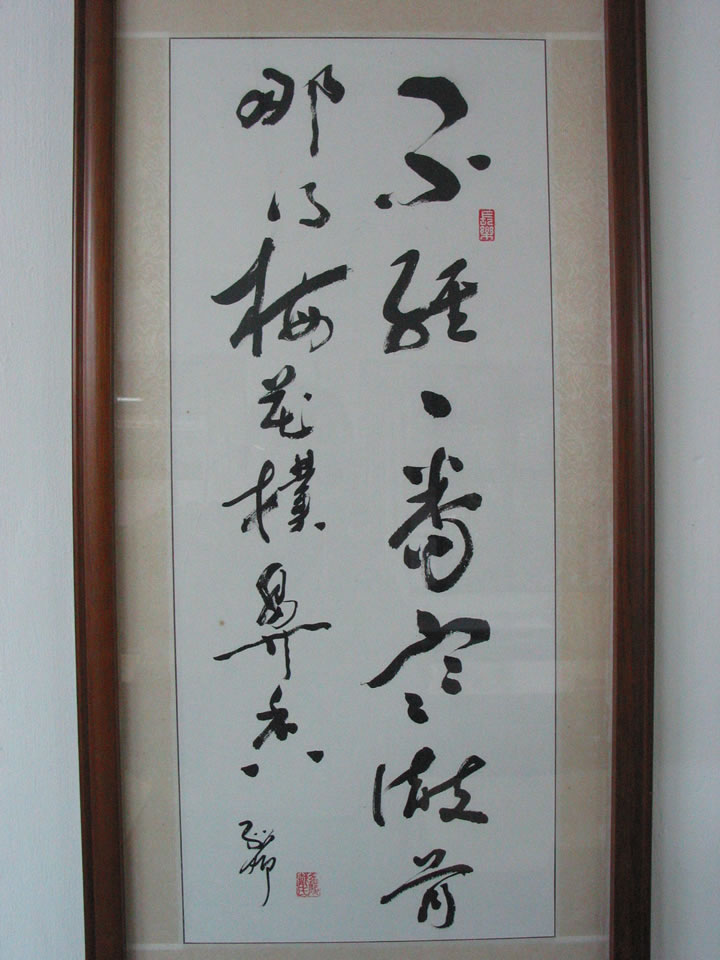 不經一番寒澈骨
長樂
那得梅花撲鼻香